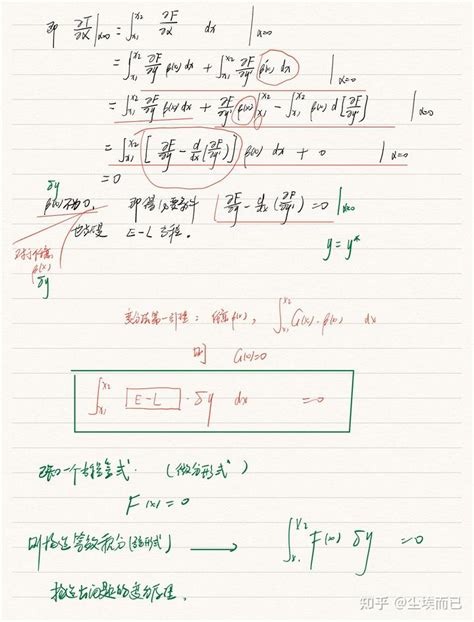 即 ∂I/∂α |α=0 = ∫x1^x2 ∂F/∂α dx |α=0
= ∫x1^x2 ∂F/∂y β(x) dx + ∫x1^x2 ∂F/∂y' β'(x) dx |α=0
= ∫x1^x2 ∂F/∂y β(x) dx + ∂F/∂y' β(x) |x1^x2 − ∫x1^x2 β(x) d[∂F/∂y'] |α=0
= ∫x1^x2 [∂F/∂y − d/dx(∂F/∂y')] β(x) dx + 0 |α=0
= 0
δy
β(x)不为0, 即得必要条件 ∂F/∂y − d/dx(∂F/∂y') = 0 |α=0
也就是 E-L 方程. y = y*
对于任意
β(x)
δy
变分法第一引理: 任意β(x), ∫x1^x2 G(x)·β(x) dx
则 G(x)=0
∫x1^x2 E-L · δy dx = 0
已知一个方程 (微分形式)
F(x) = 0
则构造等效积分(弱形式) → ∫x1^x2 F(x) δy = 0
构造出问题的变分原理.
知乎 @尘埃而已